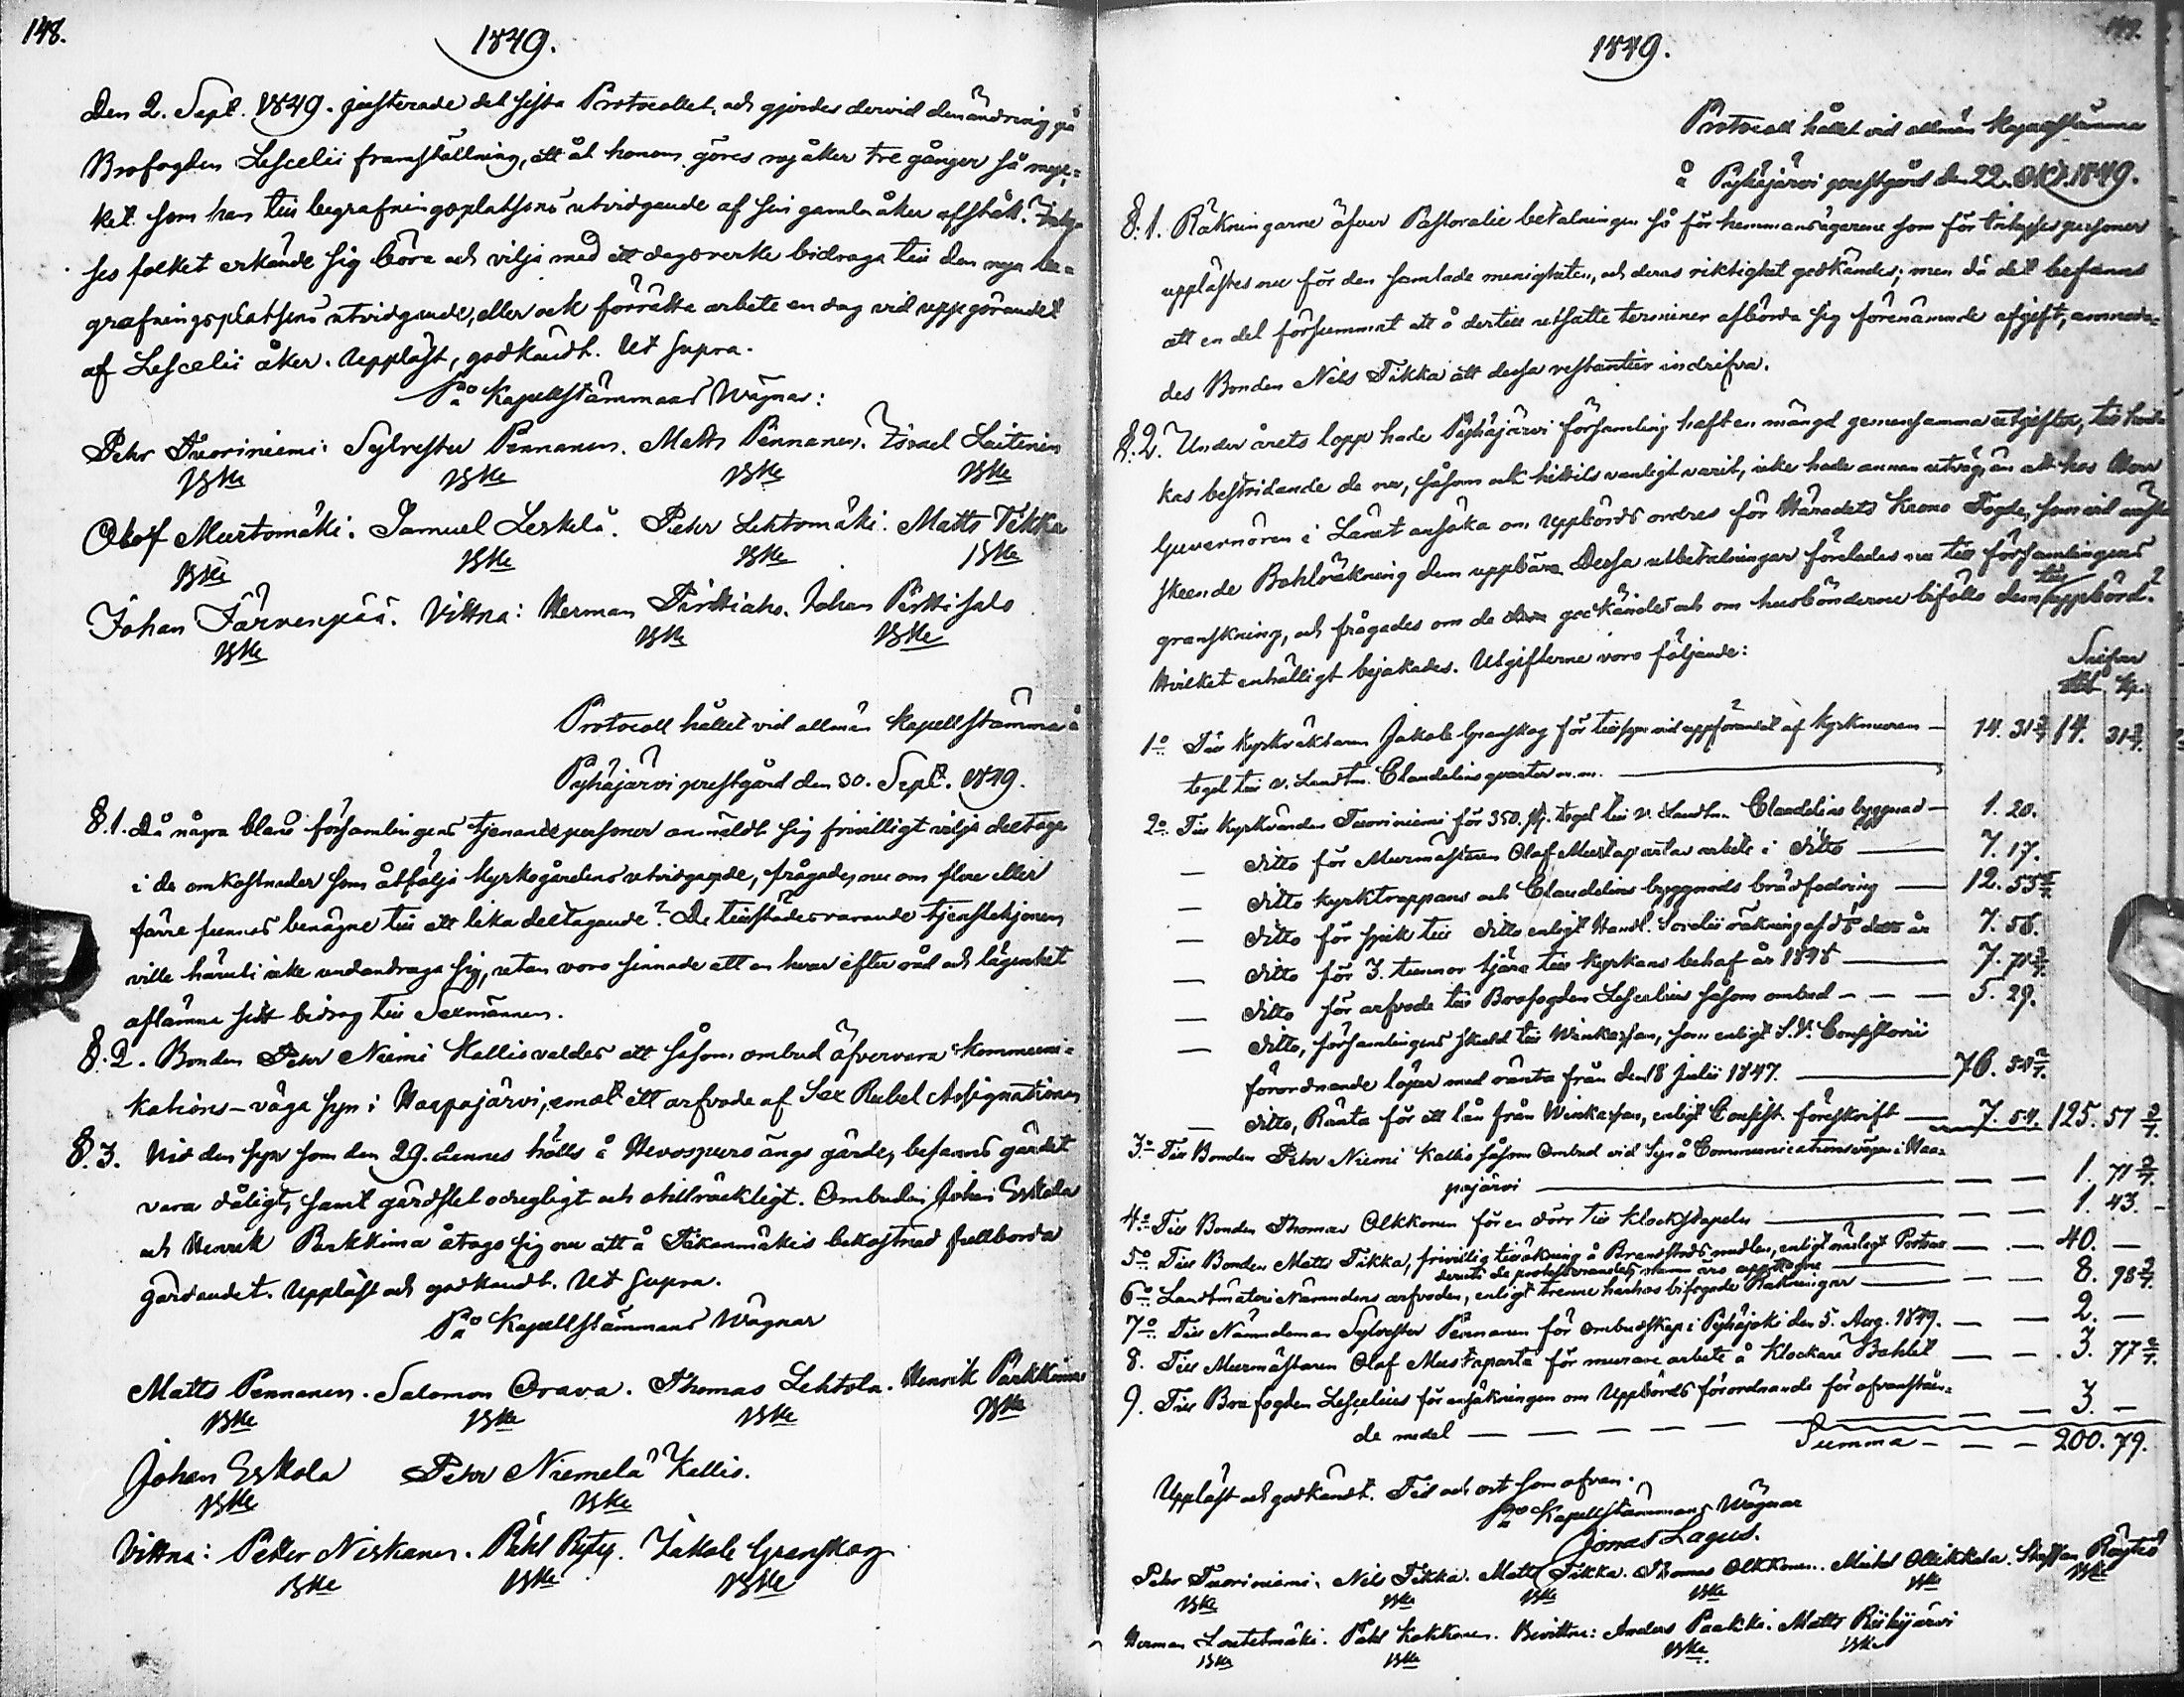 148.
1849.
Den 2. Sept. 1849. justerade det sista Protocollet, och gjordes dervid den ändring på
Brofogden Lescelii framställning, att åt honom göres ny åker tre gånger så myc-
ket som han till begrafningsplatsens utvidgande af sin gamla åker afstått.
ses folket erkände sig böra och vilja med ett dagsverke bidraga till den nya be-
grafningsplatsens utvidgande, eller ock förrätta arbete en dag vid uppgörandet
af Lescelii åker. Uppläst, godkändt. Ut supra.
På Kapellstämmans Wägnar:
Pehr Tuoriniemi. Sylvester Pennanen. Matts Pennanen. Israel Leitinen
Olof Murtomäki. Samuel Leskelä. Pehr Lehtomäki. Matts Tikka
Johan Järvenpää. Vittna: Herman Pirttiaho. Johan Pirttisalo
Protocoll hållet vid allmän Kapellstämma å
Pyhäjärvi prestgård den 30. Sept. 1849.
§.1. Då några bland församlingens tjenandepersoner anmäldt sig frivilligt vilja deltaga
i de omkostnader som åtfölja kyrkogårdens utvidgande, frågades nu om flere eller
färre funnos benägne till ett lika deltagande? De tillstädesvarande tjenstehjonen
ville häruti icke undandraga sig, utan voro sinnade att en hvar efter råd och lägenhet
aflämna sitt bidrag till Sexmännen.
§.2. Bonden Pehr Niemi Kallis valdes att såsom ombud öfvervara kommuni-
kations-väga syn i Haapajärvi, emot ett arfvode af Sex Rubel Assignationer
§.3. Vid den syn som den 29. dennes hölls å Hevospuro ängs gärde, befanns gärdet
vara dåligt, samt gärdslet odugligt och otillräckligt. Ombuden Johan Eskola
och Henrik Parkkima åtogo sig nu att å Tikanmäkis bekostnad fullborda
gärdandet. Uppläst och godkändt. Ut supra.
På Kapellstämmans Wägnar
Matts Pennanen. Salomon Orava. Thomas Lehtola. Henrik Parkkima
Johan Eskola Pehr Niemelä Kallis.
Vittna: Petter Niskanen. Påhl Ryty. Jakob Granskog
1849.
149.
Protocoll hållet vid allmän Kapellstämma
å Pyhäjärvi prestgård den 22. Okt. 1849.
§.1. Räkningarne öfver Pastoralie betalningen så för hemmansägarene som för inhyses personer
upplästes nu för den samlade menigheten, och deras riktighet godkändes; men då det befanns
att en del försummat att å dertill utsatte terminer afbörda sig förenämnde afgift, anmoda-
des Bonden Nils Tikka att dessa restantier indrifva.
§.2. Under årets lopp hade Pyhäjärvi församling haft en mängd gemensamma utgifter, till
kas bestridande de nu, såsom ock hittils vanligt varit, icke hade annan utväg, än att hos Herr
Guvernören i Länet ansöka om Uppbörds ordres för Häradets Krono Fogde, som vid
skeende Bohlräkning dem uppbära. Dessa utbetalningar föredrogs nu till församlingens
granskning, och frågades om de godkändes och om husbönderne bifölls dem till uppbörd?
Hvilket enhälligt bejakades. Utgifterne voro följande:
Silfver
Rbl Kp.
1o Till Kyrkväktaren Jakob Granskog för tillsyn vid uppförandet af Kyrkmuren — 14. 31 3/7 14. 31 3/7.
tegel till v. Landtm. Clandelins quarter m.m.
2o Till Kyrkvärden Tuoriniemi för 350. st. tegel till v. Landtm. Clandelins byggnad — 1. 20.
— ditto för Murmästaren Olof Mustapartas arbete i ditto — 7. 17.
— ditto kyrktrappans och Clandelins byggnads brädfodring — 12. 55
— ditto för spik till ditto enligt Handl. räkning af detta år 7. 58.
— ditto för 3. tunnor tjära till Kyrkans behof år 1848 — 7. 71
— ditto för arfvode till Brofogden Lescelius såsom ombud — 5. 29.
— ditto, församlingens skuld till, som enligt S.V. Consistorii
förordnande löper med ränta från den 18 Julii 1847. — 76.
— ditto, Ränta för ett lån från, enligt Consist. föreskrift — 7. 54. 125. 57
3o Till Bonden Pehr Niemi Kallis såsom Ombud vid Syn å Communicationsvägen i Haa-
pajärvi — 1. 71 3/7.
4o Till Bonden Thomas Olkkonen för en dörr till klockstapeln — 1. 43.
5o Till Bonden Matts Tikka, frivillig tillökning å Brandstods medlen, enligt — 40. —
6o Landtmäteri Nämndens arfvoden, enligt trenne härhos bifogade Räkningar — 8. 98
7o Till Nämndeman Sylvester Pennanen för ombudskap i Pyhäjoki den 5. Aug. 1849. — 2. —
8. Till Murmästaren Olof Mustaparta för murare arbete å Klockare Bohlet — 3. 77
9. Till Brofogden Lescelius för ansökningen om Uppbörds förordnande för ofvanståen-
de medel — 3. —
Summa — 200. 79.
Uppläst och godkändt. Tid och ort som ofvan.
På Kapellstämmans Wägnar
Jonas Lagus.
Pehr Tuoriniemi. Nils Tikka. Matts Tikka. Thomas Olkkonen. Michel Ollikkala. Staffan
Herman Loutelmäki. Påhl Kokkonen. Bevittna: Anders Paakki. Matts Riihijärvi